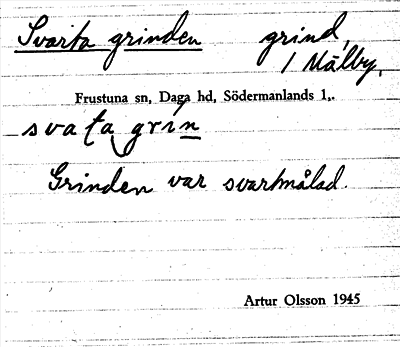 Svarta grinden grind,
i Målby,
Frustuna sn, Daga hd, Södermanlands l,.
svata grin
Grinden var svartmålad.
Artur Olsson 1945